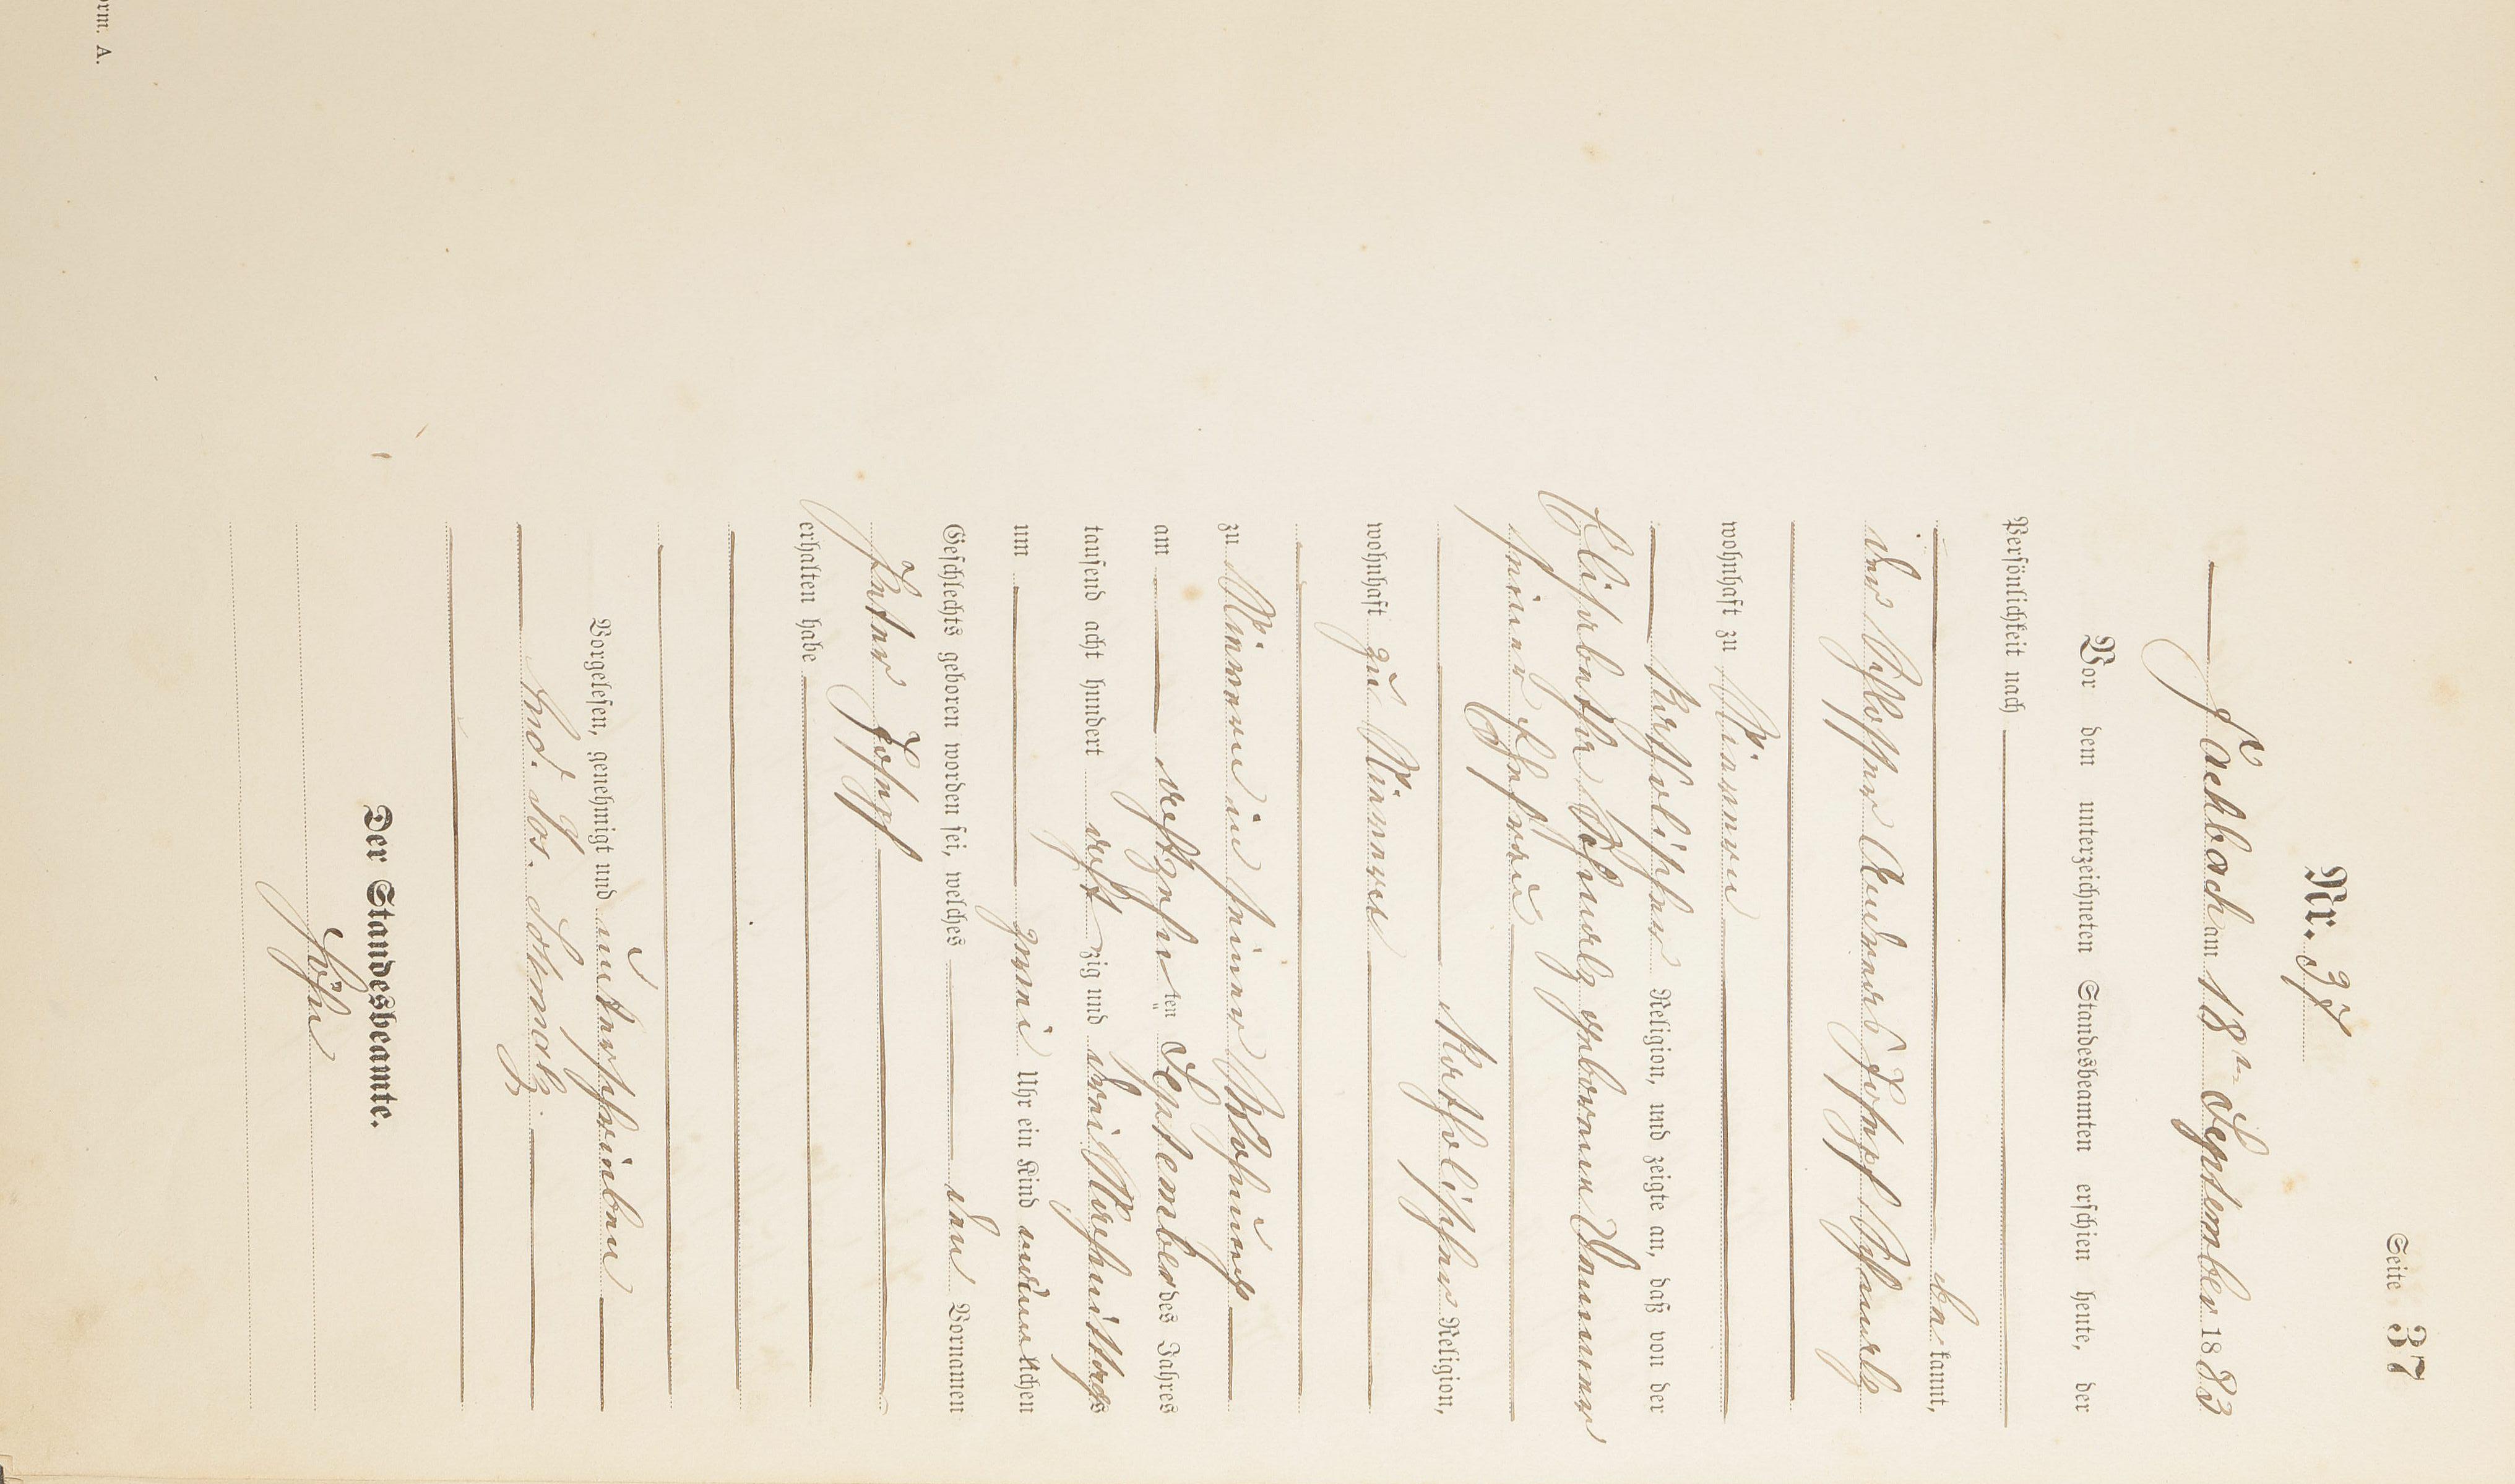 Seite 37
Nr. 37
Fachbach am 18n September 1883
Vor dem unterzeichneten Standesbeamten erschien heute, der
Persönlichkeit nach
be kannt,
der Schlosser Andreas Josef Schmalz
wohnhaft zu Nievern
katholischer Religion, und zeigte an, daß von der
Elisabetha Schmalz geborene
seiner Ehefrau
katholischer Religion,
wohnhaft zu Nievern
zu Nievern in seiner Wohnung
am achtzehnten September des Jahres
tausend acht hundert acht zig und drei Nachmittags
um zwei Uhr ein Kind männlichen
Geschlechts geboren worden sei, welches den Vornamen
Peter Josef
erhalten habe
Vorgelesen, genehmigt und unterschrieben
And. Jos. Schmalz.
Der Standesbeamte.
orm. A.